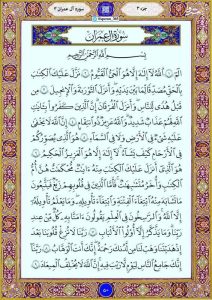 جزء ٣
سورة آل عمران ٣
سُورَةُ آلِ عِمْرَانَ
بِسْمِ اللَّهِ الرَّحْمَٰنِ الرَّحِيمِ
الٓمٓ ١ اللَّهُ لَا إِلَٰهَ إِلَّا هُوَ الْحَيُّ الْقَيُّومُ ٢ نَزَّلَ عَلَيْكَ الْكِتَٰبَ
بِالْحَقِّ مُصَدِّقًا لِّمَا بَيْنَ يَدَيْهِ وَأَنزَلَ التَّوْرَىٰةَ وَالْإِنجِيلَ ٣ مِن
قَبْلُ هُدًى لِّلنَّاسِ وَأَنزَلَ الْفُرْقَانَ إِنَّ الَّذِينَ كَفَرُوا بِـَٔايَٰتِ
اللَّهِ لَهُمْ عَذَابٌ شَدِيدٌ وَاللَّهُ عَزِيزٌ ذُو انتِقَامٍ ٤ إِنَّ اللَّهَ لَا يَخْفَىٰ
عَلَيْهِ شَيْءٌ فِي الْأَرْضِ وَلَا فِي السَّمَآءِ ٥ هُوَ الَّذِي يُصَوِّرُكُمْ
فِي الْأَرْحَامِ كَيْفَ يَشَآءُ لَآ إِلَٰهَ إِلَّا هُوَ الْعَزِيزُ الْحَكِيمُ ٦
هُوَ الَّذِي أَنزَلَ عَلَيْكَ الْكِتَٰبَ مِنْهُ ءَايَٰتٌ مُّحْكَمَٰتٌ هُنَّ أُمُّ
الْكِتَٰبِ وَأُخَرُ مُتَشَٰبِهَٰتٌ فَأَمَّا الَّذِينَ فِي قُلُوبِهِمْ زَيْغٌ فَيَتَّبِعُونَ
مَا تَشَٰبَهَ مِنْهُ ابْتِغَآءَ الْفِتْنَةِ وَابْتِغَآءَ تَأْوِيلِهِ وَمَا يَعْلَمُ تَأْوِيلَهُ
إِلَّا اللَّهُ وَالرَّٰسِخُونَ فِي الْعِلْمِ يَقُولُونَ ءَامَنَّا بِهِ كُلٌّ مِّنْ عِندِ
رَبِّنَا وَمَا يَذَّكَّرُ إِلَّآ أُولُوا الْأَلْبَٰبِ ٧ رَبَّنَا لَا تُزِغْ قُلُوبَنَا بَعْدَ
إِذْ هَدَيْتَنَا وَهَبْ لَنَا مِن لَّدُنكَ رَحْمَةً إِنَّكَ أَنتَ الْوَهَّابُ ٨ رَبَّنَآ
إِنَّكَ جَامِعُ النَّاسِ لِيَوْمٍ لَّا رَيْبَ فِيهِ إِنَّ اللَّهَ لَا يُخْلِفُ الْمِيعَادَ ٩
٥٠